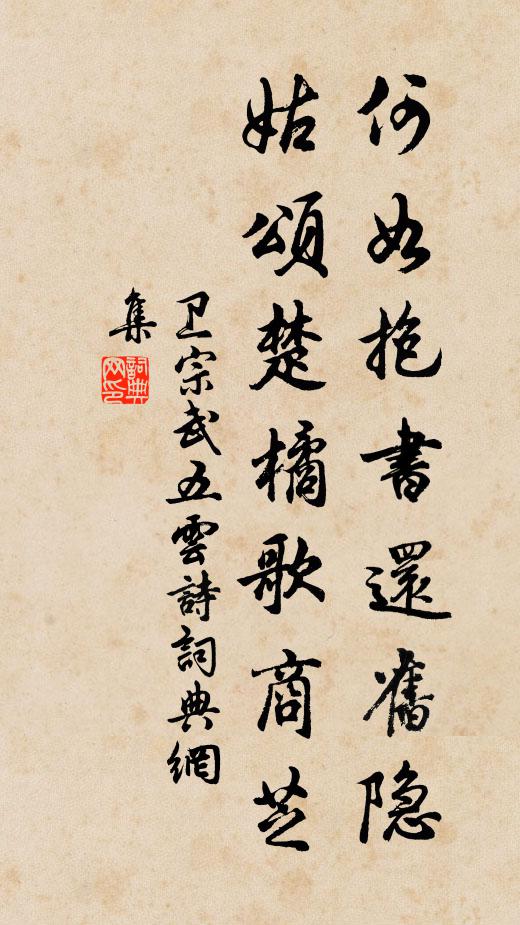 何如抱書還舊隐
姑頌楚橘歌商芝
卫宗武五雲詩詞典網
集
詞典网印